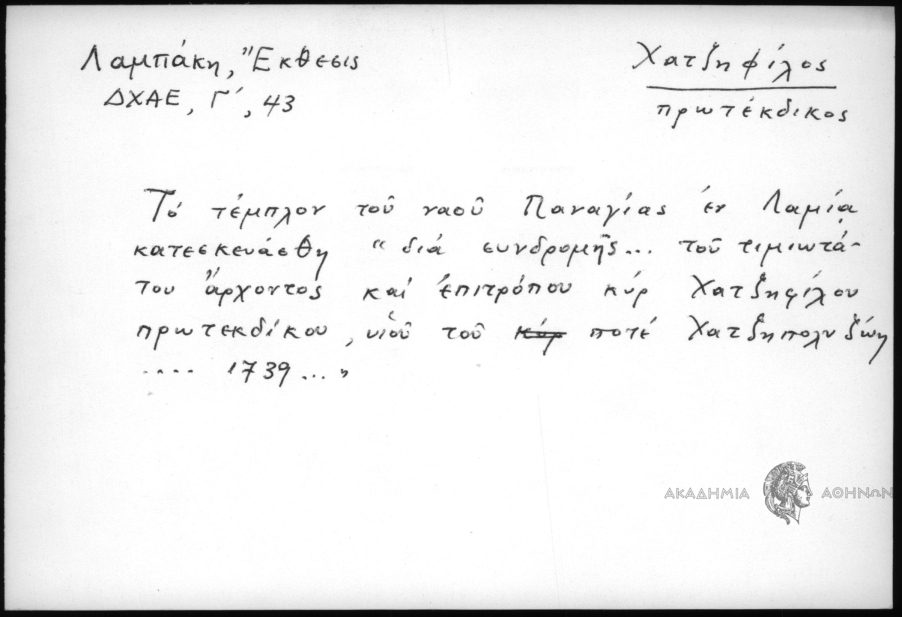 Λαμπάκη, Ἔκθεσις
ΔΧΑΕ, Γ΄, 43
Χατζηφίλος
πρωτέκδικος
Τό τέμπλον τοῦ ναοῦ Παναγίας ἐν Λαμίᾳ
κατεσκευάσθη "διά συνδρομῆς... τοῦ τιμιωτά-
του ἄρχοντος καί ἐπιτρόπου κύρ Χατζηφίλου
πρωτεκδίκου, υἱοῦ τοῦ κύρ ποτέ Χατζηπολυζώη
.... 1739..."
ΑΚΑΔΗΜΙΑ ΑΘΗΝΩΝ